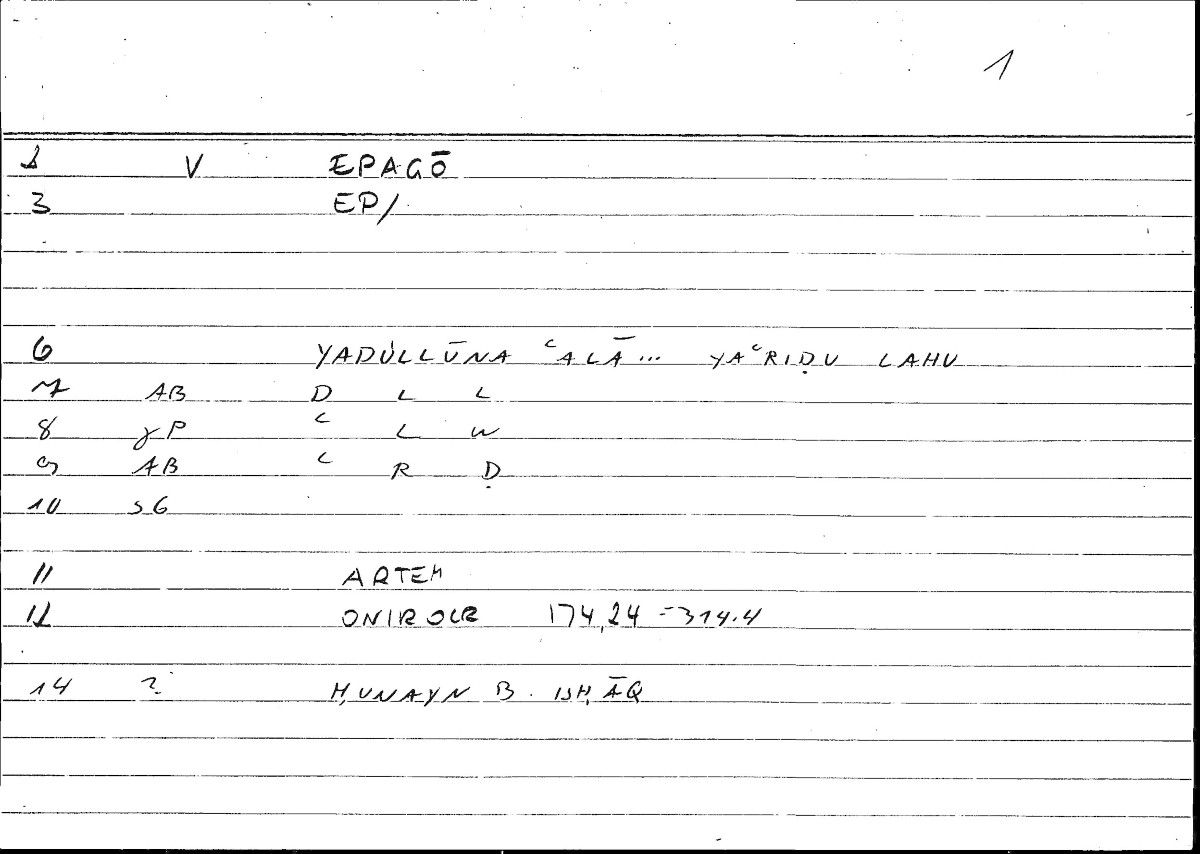 1
2 V EPAGŌ
3 EP/
6 YADULLŪNA ʿALĀ... YAʿRIḌU LAHU
7 AB D L L
8 γP ʿ L W
9 AB ʿ R Ḍ
10 SG
11 ARTEM
12 ONIROCR 174,24 = 314.4
14 ? ḤUNAYN B. ISḤĀQ